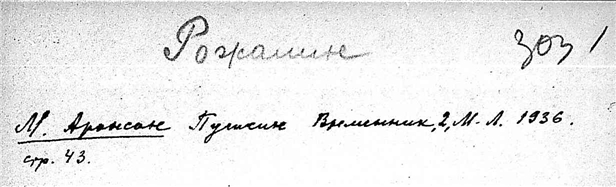 Рогалин 303 1
М. Аронсон Пушкин Временник, 2, М.-Л. 1936.
стр. 43.